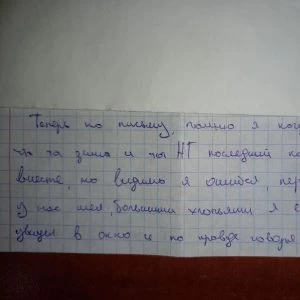 Теперь по письму, помню я ког
что та зима и ты НГ последний
вместе, но видимо я ошибся, пер
у нас шёл, большими хлопьями я
увидел в окно и по правде говоря